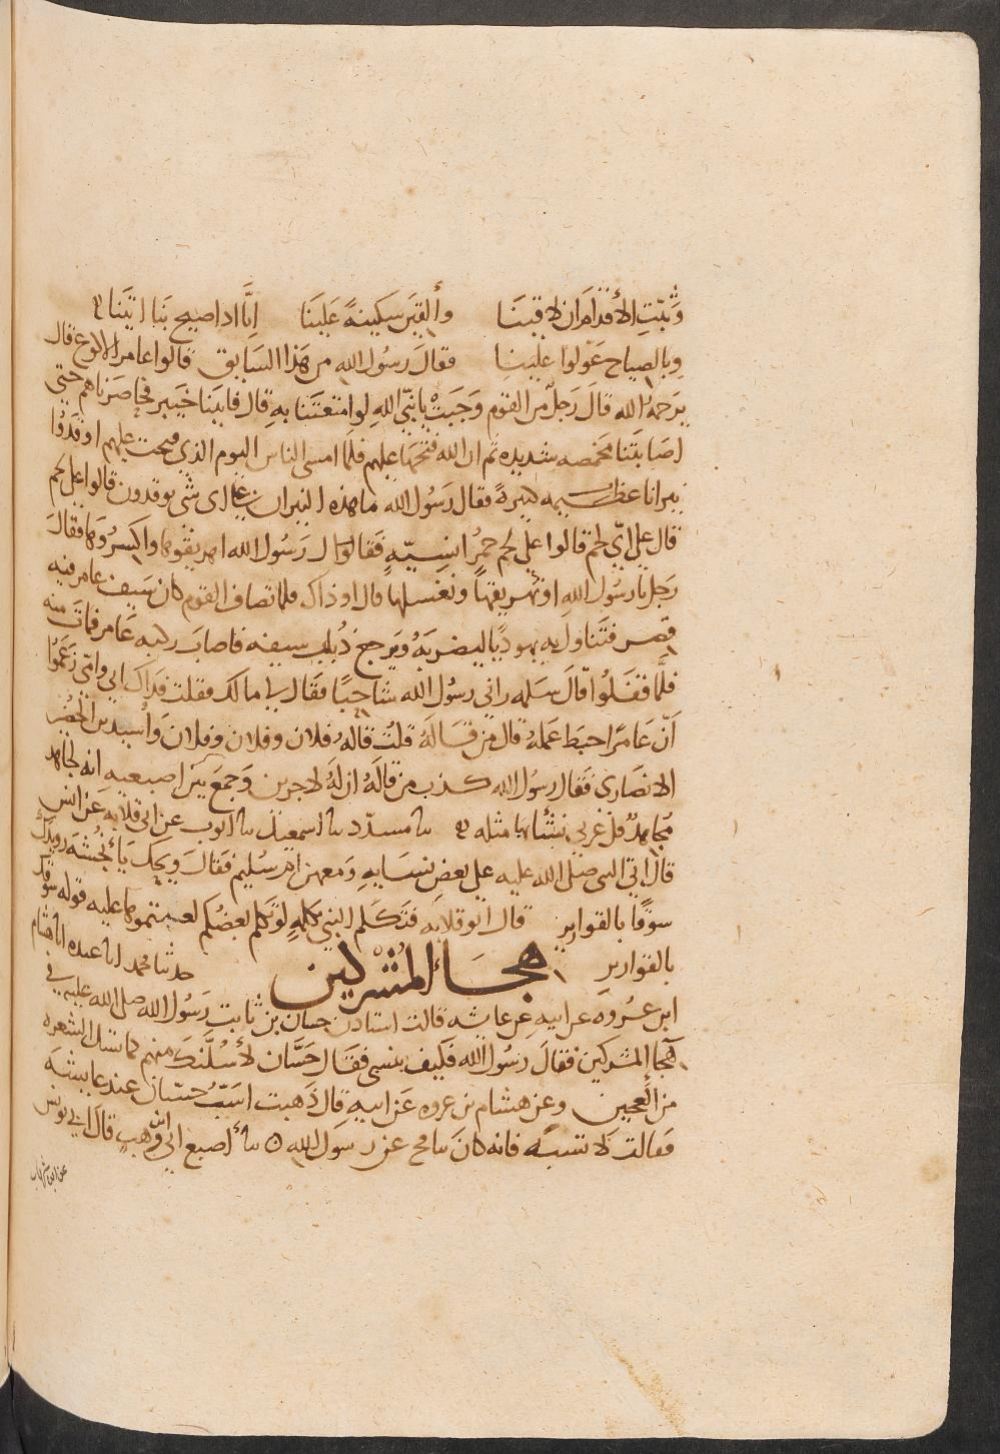 وَثَبّتِ الأَقدَامَ ان لاقينَا وأَلقيَن سَكينةً عَلَينَا إنَّا اذا صيح بنَا اتَينَا
وبالصِياح عَوّلوا علينا فقالَ رَسُول الله من هَذا السَايق قالوا عامر الاكوع قال
يرَحمهُ الله قالَ رَجلٌ من القوم وَجَبَتْ يا نبيّ اللهِ لولا متعتَنا بهِ قال فاتينَا خيبر فحاصَرناهم حتى
اصَابَتنا مخمصه شديده ثم ان الله فتحهَا عليهم فلما امسى الناس اليوم الذي فتحت عليهم اوقدُوا
نيرانا عظيمه كثيرةً فقال رَسُول الله ما هذه النيران على اى شى يوقدون قالوا على لحم
قال على ايّ لحم قالوا على لحم حمرُ انسِيّةٍ فقال رَسُول الله اهريقوها واكسرُوهَا فقالَ
رَجل يا رسُول اللهِ او نُهريقهَا ونغسلها قال او ذاك فلما تصاف القوم كان سَيف عامر فيه
قصر فتَناول به يهوديًا ليضربَهُ ويَرجعُ ذُباب سيفه فاصابَ ركبه عَامر فماتَ منه
فلَمَّا قفَلُوا قالَ سَلمه رانى رسُول الله شاحبًا فقال لى ما لك فقلت فداك ابى وامّى زعَمُوا
أنّ عَامرًا حبطَ عَملهُ قال مَن قالَهُ قلتُ قالهُ فلان وفلان وفلان وَأُسَيد بن الحُضَير
الانصَارى فقال رسول الله كذب من قالَهُ ان لهُ لاجرين وَجَمعَ بَين اصبعيه انه لجاهد
مُجاهدٌ قل عربى نشأ بها مثله نا مسدّد نا اسمعيل نا ايوب عن ابى قلابه عَن انس
قالَ اتى النبى صلى الله عليه على بعضِ نسَايهِ وَمعهن ام سُليم فقَالَ ويحك يَا أَنجشه رويدك
سوَقًا بالقوارير قال ابو قلابه فتكَلم النبى بكلمةٍ لو تكلم بعضُكم لعبتموها عليه قوله سوَقك
بالقوارير هجَاءُ المُشْركين حدثنا محمد نا عبده انا هشام
ابن عُروه عَن ابيه عن عايشه قالت استاذن حسان بن ثابت رَسُول الله صلى الله عليه فى
هجا المشركين فقالَ رَسُول الله فكيف بنسبى فقال حَسَّان لأَسُلَّنكَ منهم كما تسل الشعره
من العجين وعن هشام بن عروه عَن ابيه قال ذَهبت اسَبُّ حسّان عند عايشه
فقالت لا تسبّه فانه كانَ ينافح عن رسَول الله نا أصبغ انى ابن وهب قال انى يونس
عن ابن شهاب